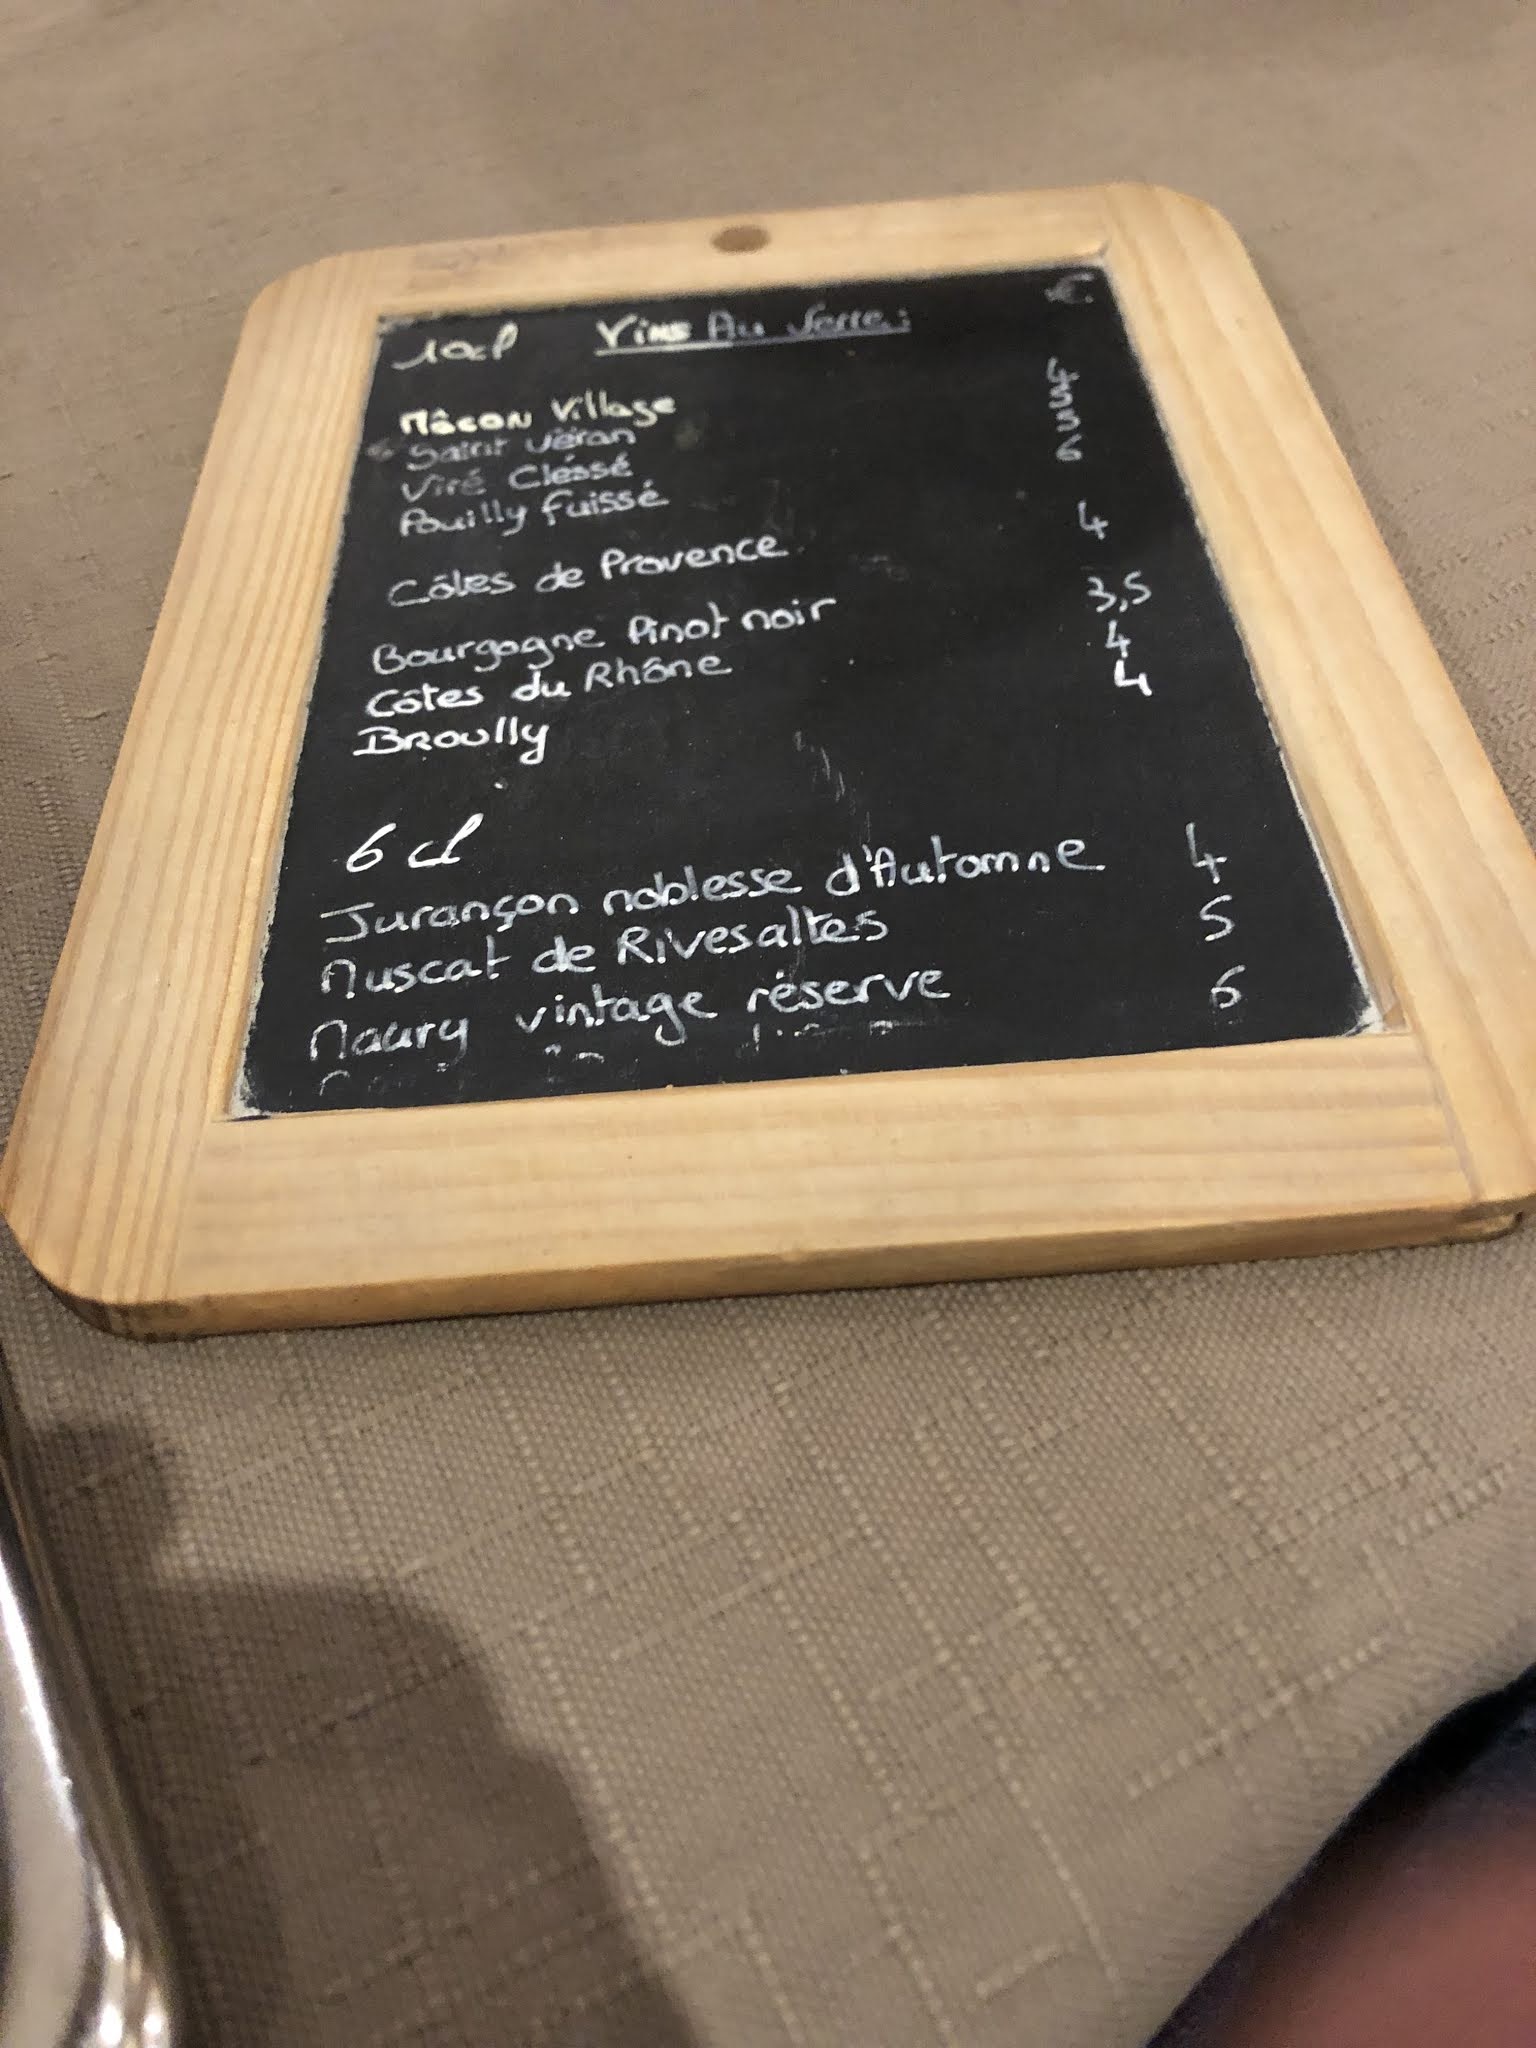 10cl Vins Au Verre: €
Mâcon Village 4
Saint Véran 5
Viré Cléssé 5
Pouilly fuissé 6
Côtes de Provence 4
Bourgogne Pinot noir 3,5
Côtes du Rhône 4
BRouilly 4
6 cl
Jurançon noblesse d'Automne 4
Muscat de Rivesaltes 5
Maury vintage réserve 6